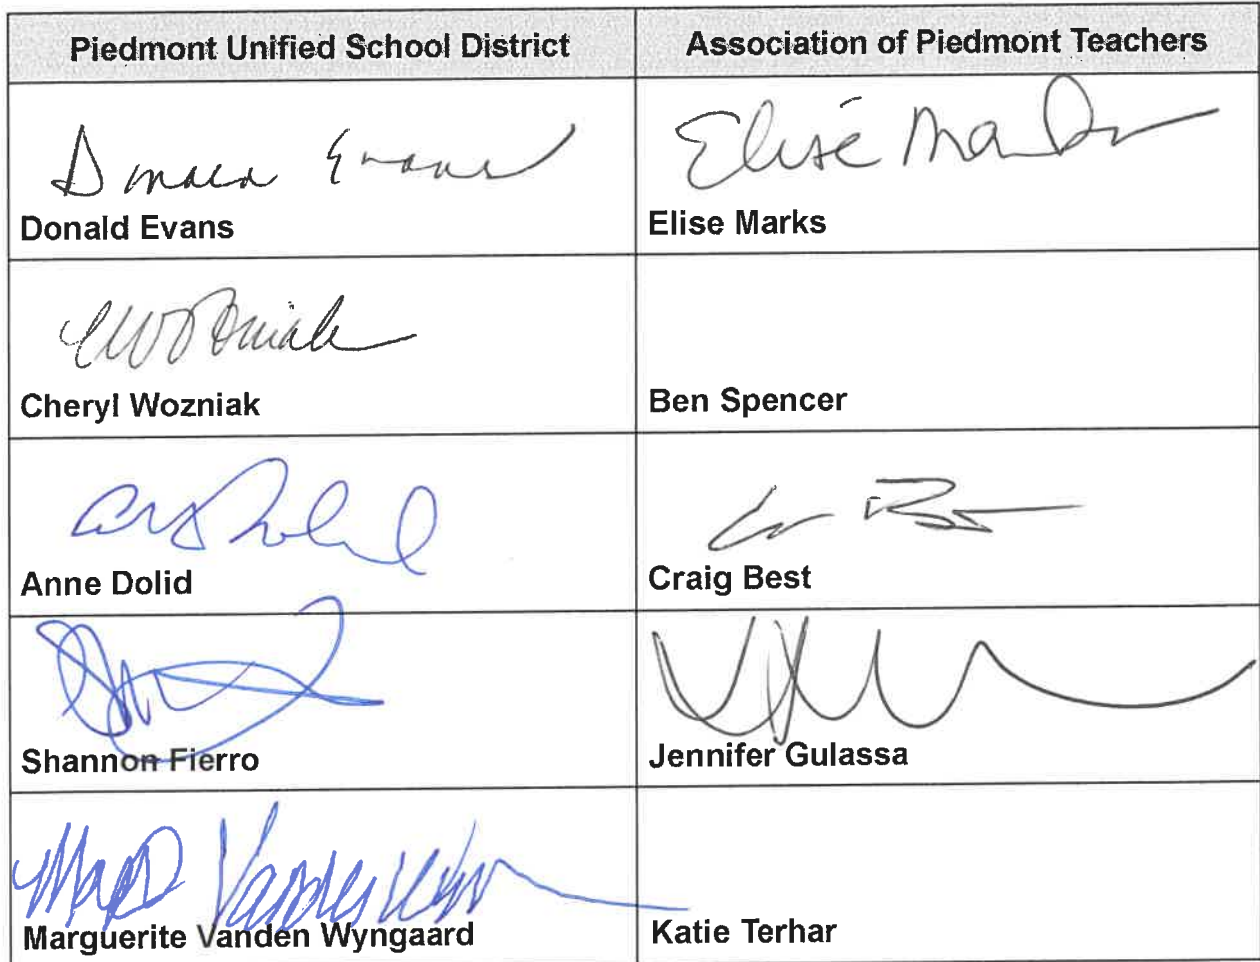 Piedmont Unified School District
Association of Piedmont Teachers
Donald Evans
Elisé Marks
Donald Evans
Elise Marks
CWozniak
Cheryl Wozniak
Ben Spencer
Anne Dolid
Craig Best
Shannon Fierro
Jennifer Gulassa
Marguerite Vanden Wyngaard
Katie Terhar